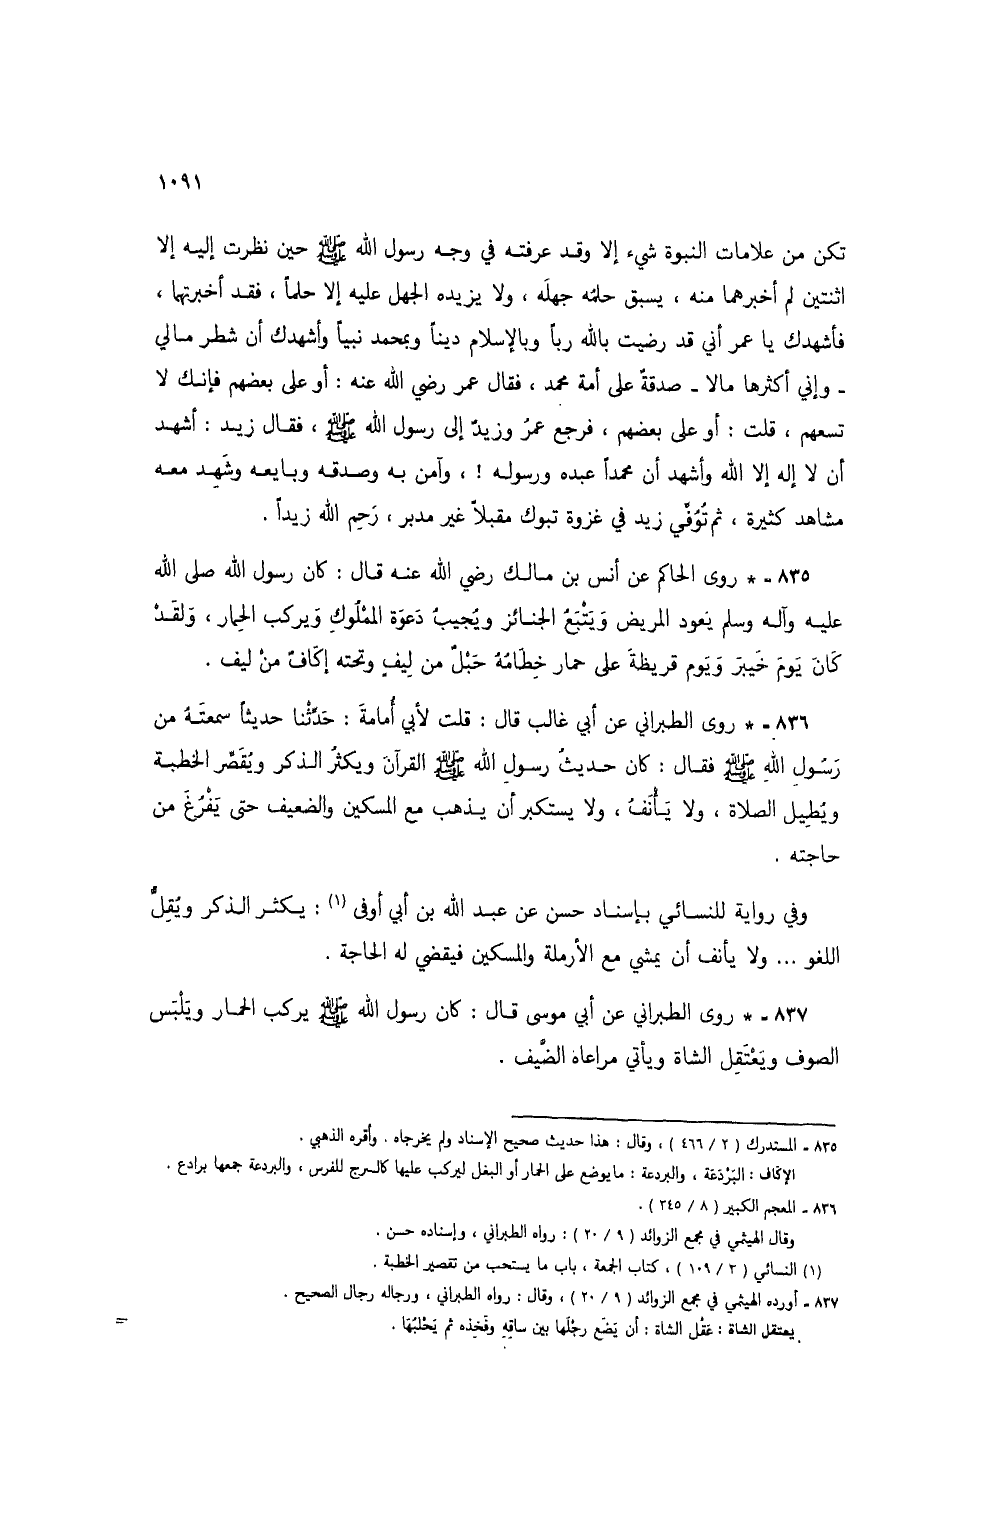 ١٠٩١
تكن من علامات النبوة شيء إلا وقد عرفته في وجه رسول الله ﷺ حين نظرت إليه إلا
اثنتين لم أخبرهما منه ، يسبق حلمُه جهلَه ، ولا يزيده الجهل عليه إلا حلماً ، فقد أخبرتهما ،
فأشهدك يا عمر أني قد رضيت بالله رباً وبالإسلام ديناً وبمحمد نبياً وأشهدك أن شطر مالي
ـ وإني أكثرها مالا ـ صدقةٌ على أمة محمد ، فقال عمر رضي الله عنه : أو على بعضهم فإنك لا
تسعهم ، قلت : أو على بعضهم ، فرجع عمرُ وزيدٌ إلى رسول الله ﷺ ، فقال زيد : أشهد
أن لا إله إلا الله وأشهد أن محمداً عبده ورسوله ! ، وآمن به وصدقه وبايعه وشَهِد معه
مشاهد كثيرة ، ثم تُوُفِّي زيد في غزوة تبوك مقبلاً غير مدبر ، رَحِم الله زيداً .
٨٣٥ ـ * روى الحاكم عن أنس بن مالك رضي الله عنه قال : كان رسول الله صلى الله
عليه وآله وسلم يَعود المريض وَيَتْبَعُ الجنائز ويُجيبُ دَعوَة المْلُوكِ وَيركب الحِمار ، وَلقَدْ
كَانَ يَومَ خَيبرَ وَيَوم قريظةَ على حمار خِطَامُهُ حَبْلٌ من لِيفٍ وتحته إكَافٌ منْ ليف .
٨٣٦ ـ * روى الطبراني عن أبي غالب قال : قلت لأبي أُمامةَ : حَدِّثْنا حديثاً سمعتَهُ من
رَسُولِ اللهِ ﷺ فقال : كان حديثُ رسولِ الله ﷺ القرآنَ ويكثرُ الذكر ويُقَصِّر الخطبة
ويُطِيل الصلاة ، ولا يَأْنَفُ ، ولا يستكبر أن يذهب مع المسكين والضعيف حتى يَفْرُغَ من
حاجته .
وفي رواية للنسائي بإسناد حسن عن عبد الله بن أبي أوفى (١) : يكثر الذكر ويُقِلُّ
اللغو ... ولا يأنف أن يمشي مع الأرملة والمسكين فيقضي له الحاجة .
٨٣٧ ـ * روى الطبراني عن أبي موسى قال : كان رسول الله ﷺ يركب الحمار ويَلْبَس
الصوف ويَعْتَقِل الشاة ويأتي مراعاه الضَّيف .
٨٣٥ ـ المستدرك ( ٢ / ٤٦٦ ) ، وقال : هذا حديث صحيح الإسناد ولم يخرجاه . وأقره الذهبي .
الإكاف : البَرْدَعَة ، والبردعة : مايوضع على الحمار أو البغل ليركب عليها كالسرج للفرس ، والبردعة جمعها برادع .
٨٣٦ ـ المعجم الكبير ( ٨ / ٣٤٥ ) .
وقال الهيثمي في مجمع الزوائد ( ٩ / ٢٠ ) : رواه الطبراني ، وإسناده حسن .
(١) النسائي ( ٣ / ١٠٩ ) ، كتاب الجمعة ، باب ما يستحب من تقصير الخطبة .
٨٣٧ ـ أورده الهيثمي في مجمع الزوائد ( ٩ / ٢٠ ) ، وقال : رواه الطبراني ، ورجاله رجال الصحيح .
يعتقل الشاة : عَقْل الشاة : أن يَضَع رجْلَها بين ساقِهِ وفَخِذه ثم يَحْلبُهَا .
=